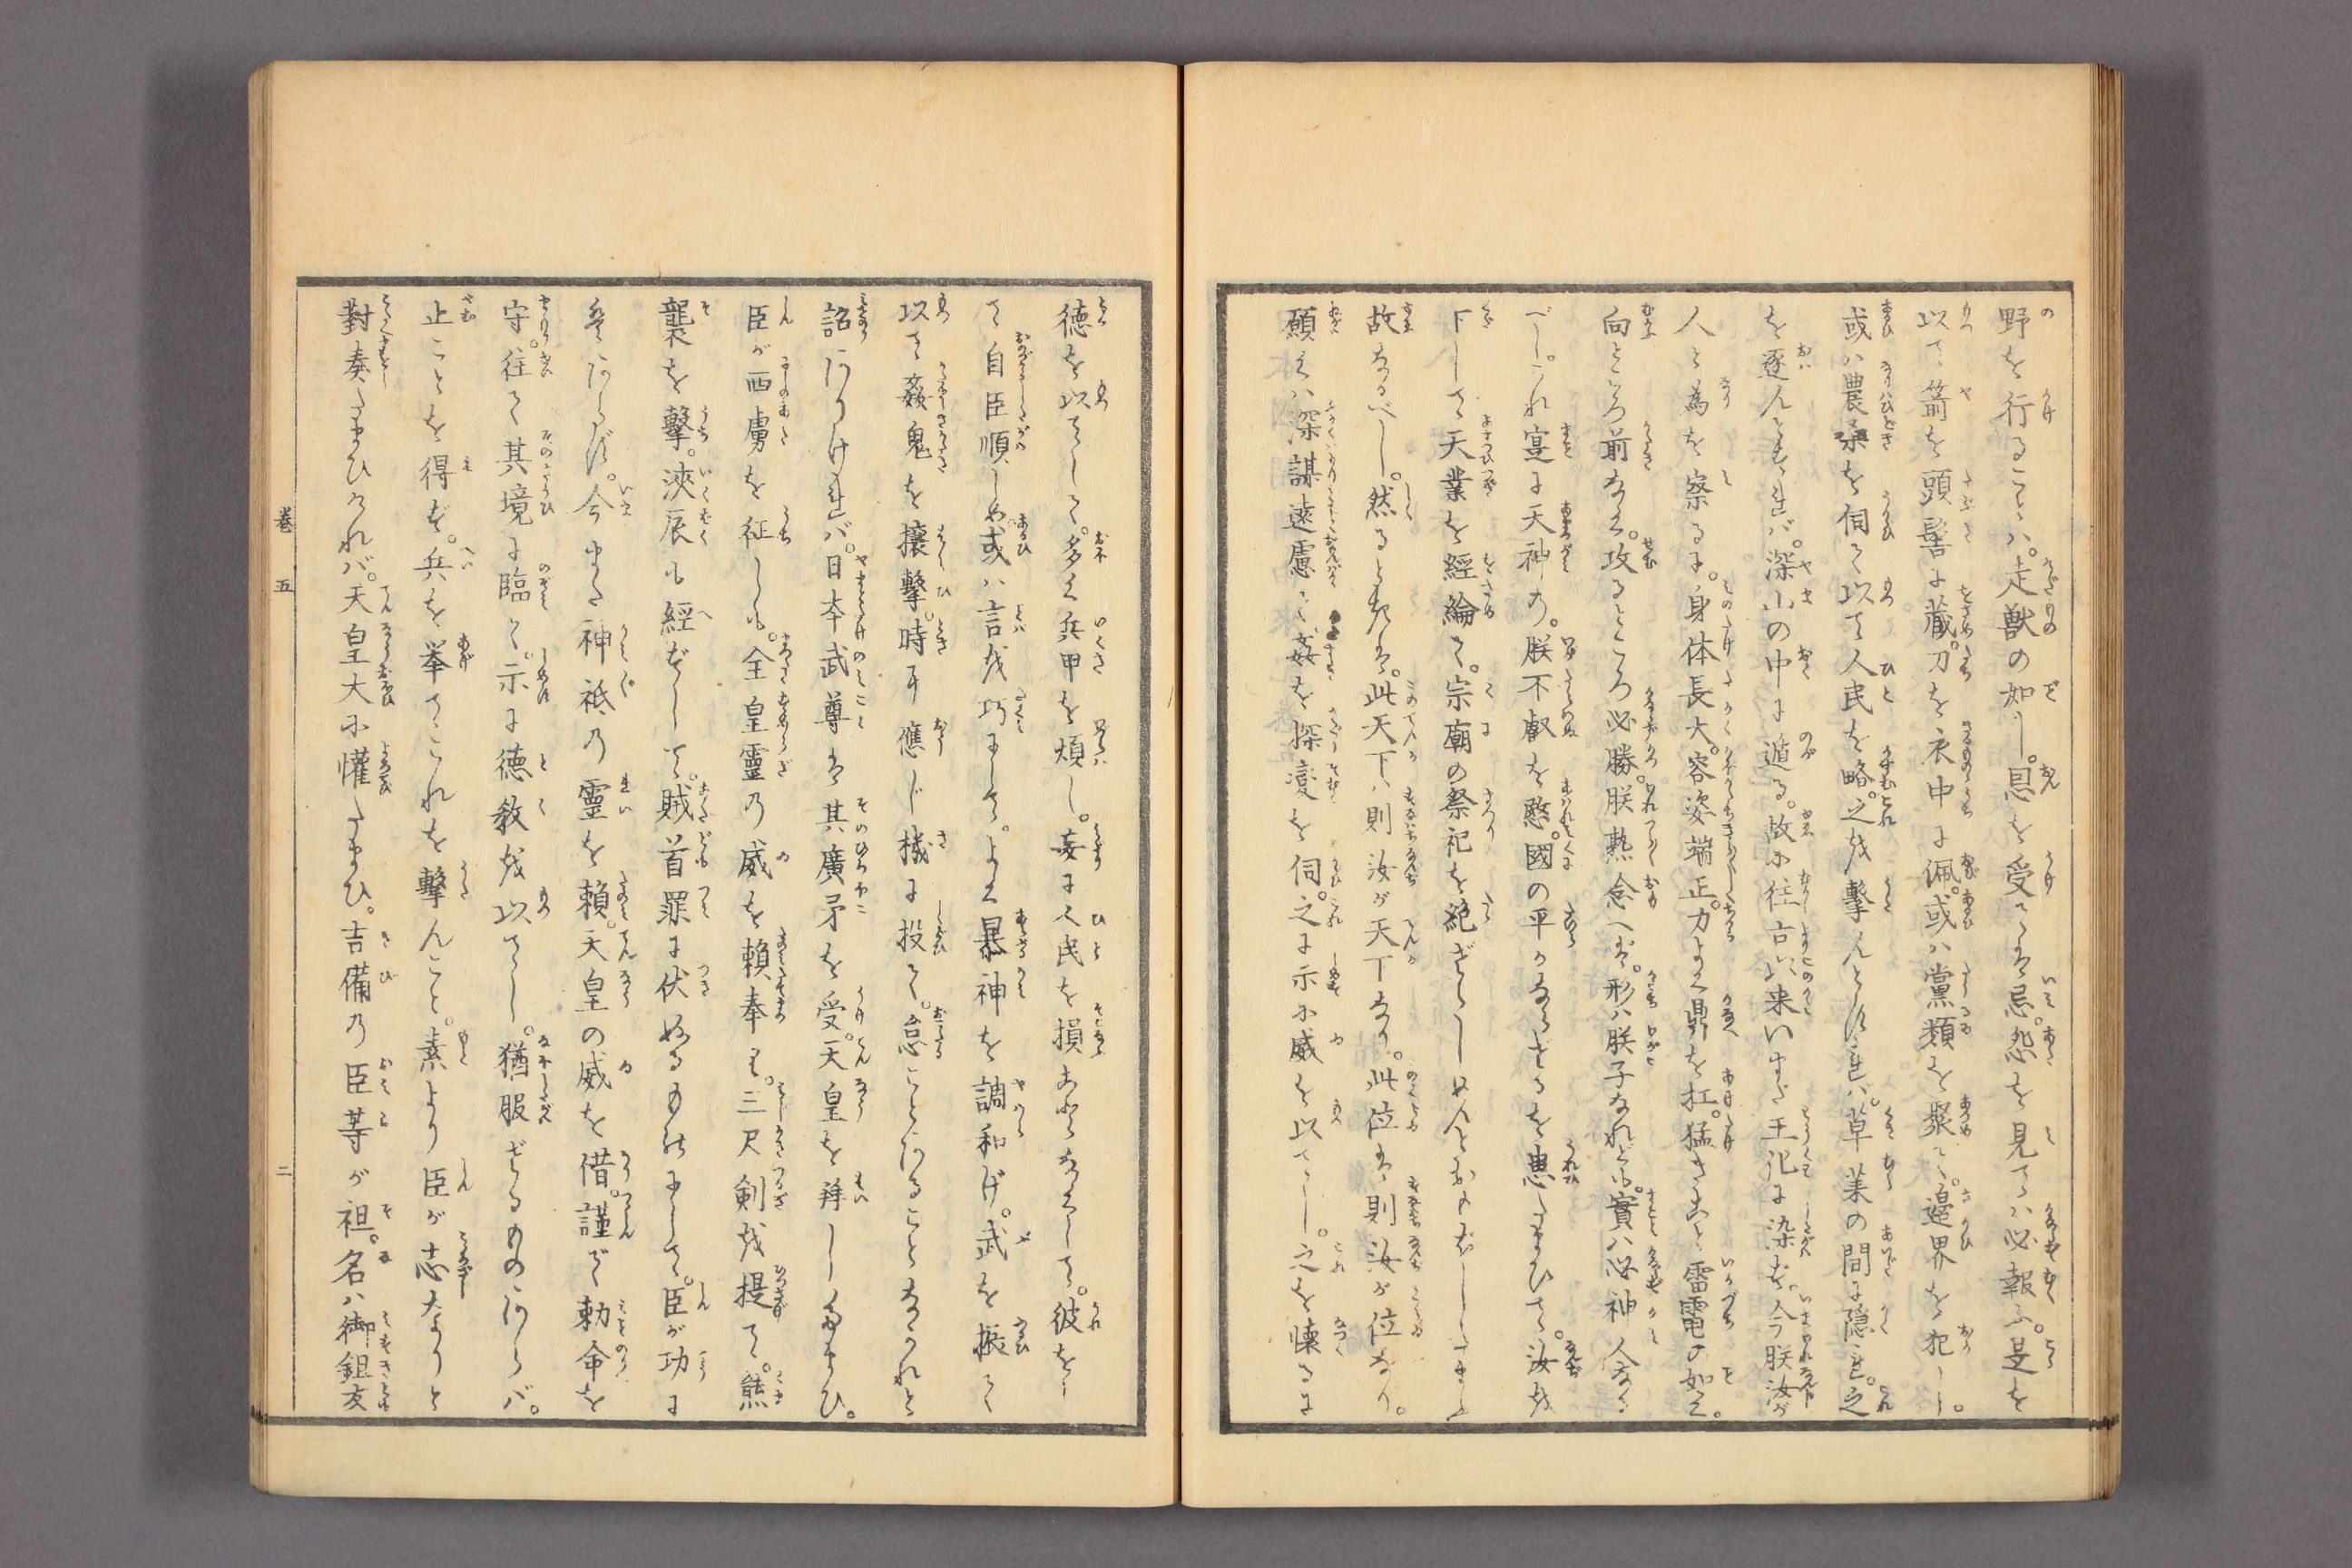 野を行ること八。走獣の如し。恩を受てハ忌。怨を見てハ必報ふ。是を
以て箭を頭髻に蔵。刀を衣中に佩。或ハ黨類を聚て。邊界を犯し。
或ハ農桑を伺て以て人民を略。之を擊んとすれバ。草莱の間に隠れ。之
を逐んとすれバ。深山の中に遁る。故に往古以来いまだ王化に染ず。今朕汝が
人と為を察るに。身体長大。容姿端正。力よく鼎を扛。猛きこと雷電の如く。
向ところ前なく。攻るところ必勝。朕熟念へば。形ハ朕子なれども。實ハ必神人なる
べし。これ寔に天神の。朕不叡を愍。國の平かならざるを患たまひて。汝を
下して天業を經綸て。宗廟の祭祀を絶ざらしめんとおぼしたまふ
故なるべし。然るときは。此天下ハ則汝が天下なり。此位は則汝が位なり。
願くハ深謀遠慮て姦を探變を伺。之に示に威を以てし。之を懐るに
徳を以てして。多く兵甲を煩し。妄に人民を損ふことなくして。彼をし
て自臣順しめ。或ハ言を巧にして。よく暴神を調和げ。武を振て
以て姦鬼を攘擊。時に應じ機に投て。怠ことあることなかれと
詔ありけれバ。日本武尊は其廣矛を受。天皇を拜したまひ。
臣が西虜を征しも。全皇靈の威を頼奉て。三尺剣を提て。熊
襲を擊。浹辰も經ずして。賊首罪に伏ぬるものにして。臣が功に
はあらず。今また神祇の靈を頼。天皇の威を借。謹で勅命を
守。往て其境に臨て。示に徳教を以てし。猶服ざるものあらバ。
止ことを得ず。兵を挙てこれを擊んこと。素より臣が志なりと
對奏たまひけれバ。天皇大に懽たまひ。吉備の臣等が祖。名ハ御鉏友
巻五
二